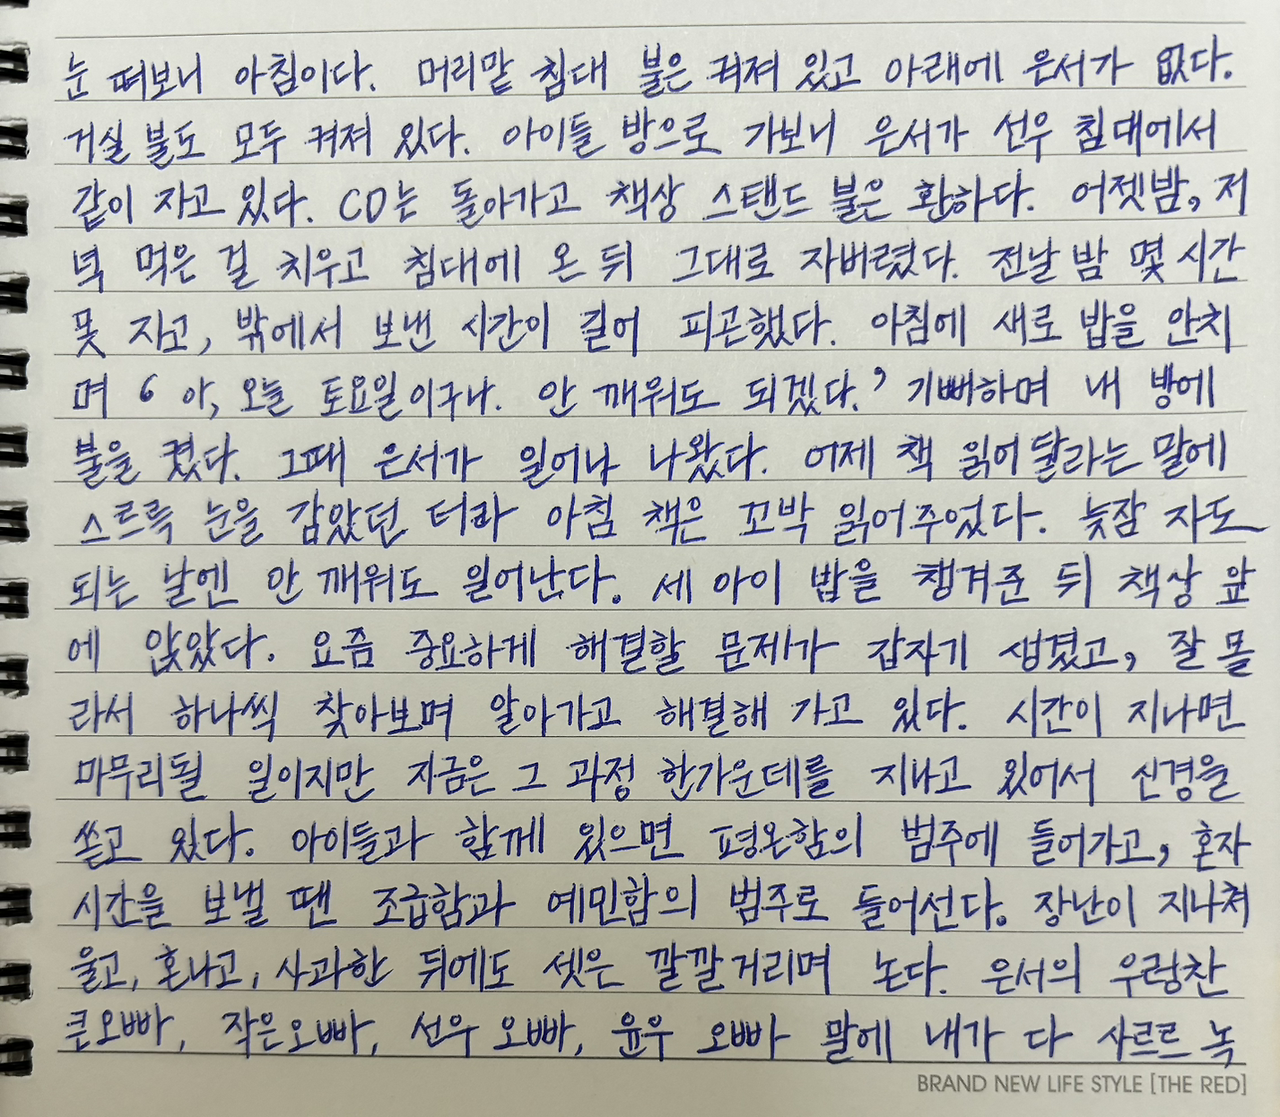 눈 떠보니 아침이다. 머리맡 침대 불은 켜져 있고 아래에 은서가 없다.
거실 불도 모두 켜져 있다. 아이들 방으로 가보니 은서가 선우 침대에서
같이 자고 있다. CD는 돌아가고 책상 스탠드 불은 환하다. 어젯밤, 저
녁 먹은 걸 치우고 침대에 온 뒤 그대로 자버렸다. 전날 밤 몇 시간
못 자고, 밖에서 보낸 시간이 길어 피곤했다. 아침에 새로 밥을 안치
며 ‘아, 오늘 토요일이구나. 안 깨워도 되겠다.’ 기뻐하며 내 방에
불을 켰다. 그때 은서가 일어나 나왔다. 어제 책 읽어달라는 말에
스르륵 눈을 감았던 터라 아침 책은 꼬박 읽어주었다. 늦잠 자도
되는 날엔 안 깨워도 일어난다. 세 아이 밥을 챙겨준 뒤 책상 앞
에 앉았다. 요즘 중요하게 해결할 문제가 갑자기 생겼고, 잘 몰
라서 하나씩 찾아보며 알아가고 해결해 가고 있다. 시간이 지나면
마무리될 일이지만 지금은 그 과정 한가운데를 지나고 있어서 신경을
쏟고 있다. 아이들과 함께 있으면 평온함의 범주에 들어가고, 혼자
시간을 보낼 땐 조급함과 예민함의 범주로 들어선다. 장난이 지나쳐
울고, 혼나고, 사과한 뒤에도 셋은 깔깔거리며 논다. 은서의 우렁찬
큰오빠, 작은오빠, 선우 오빠, 윤우 오빠 말에 내가 다 사르르 녹
BRAND NEW LIFE STYLE [THE RED]